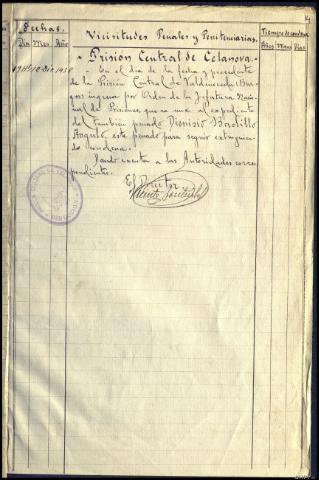 Fechas. Vicisitudes Penales y Penitenciarias. Tiempo de condena
Dia Mes Año Años Meses Dias
- Prisión Central de Celanova. -
- En el dia de la fecha y procedente
de la Prisión Central de Valdenoceda (Bur-
gos) ingresa por Orden de la Jefatura Nacio-
nal de Prisiones que se une al expediente
del también penado Dionisio Bodillo
Angulo, este penado para seguir extinguiendo
condena.
Dando cuenta a las Autoridades corres-
pondientes.
El Director